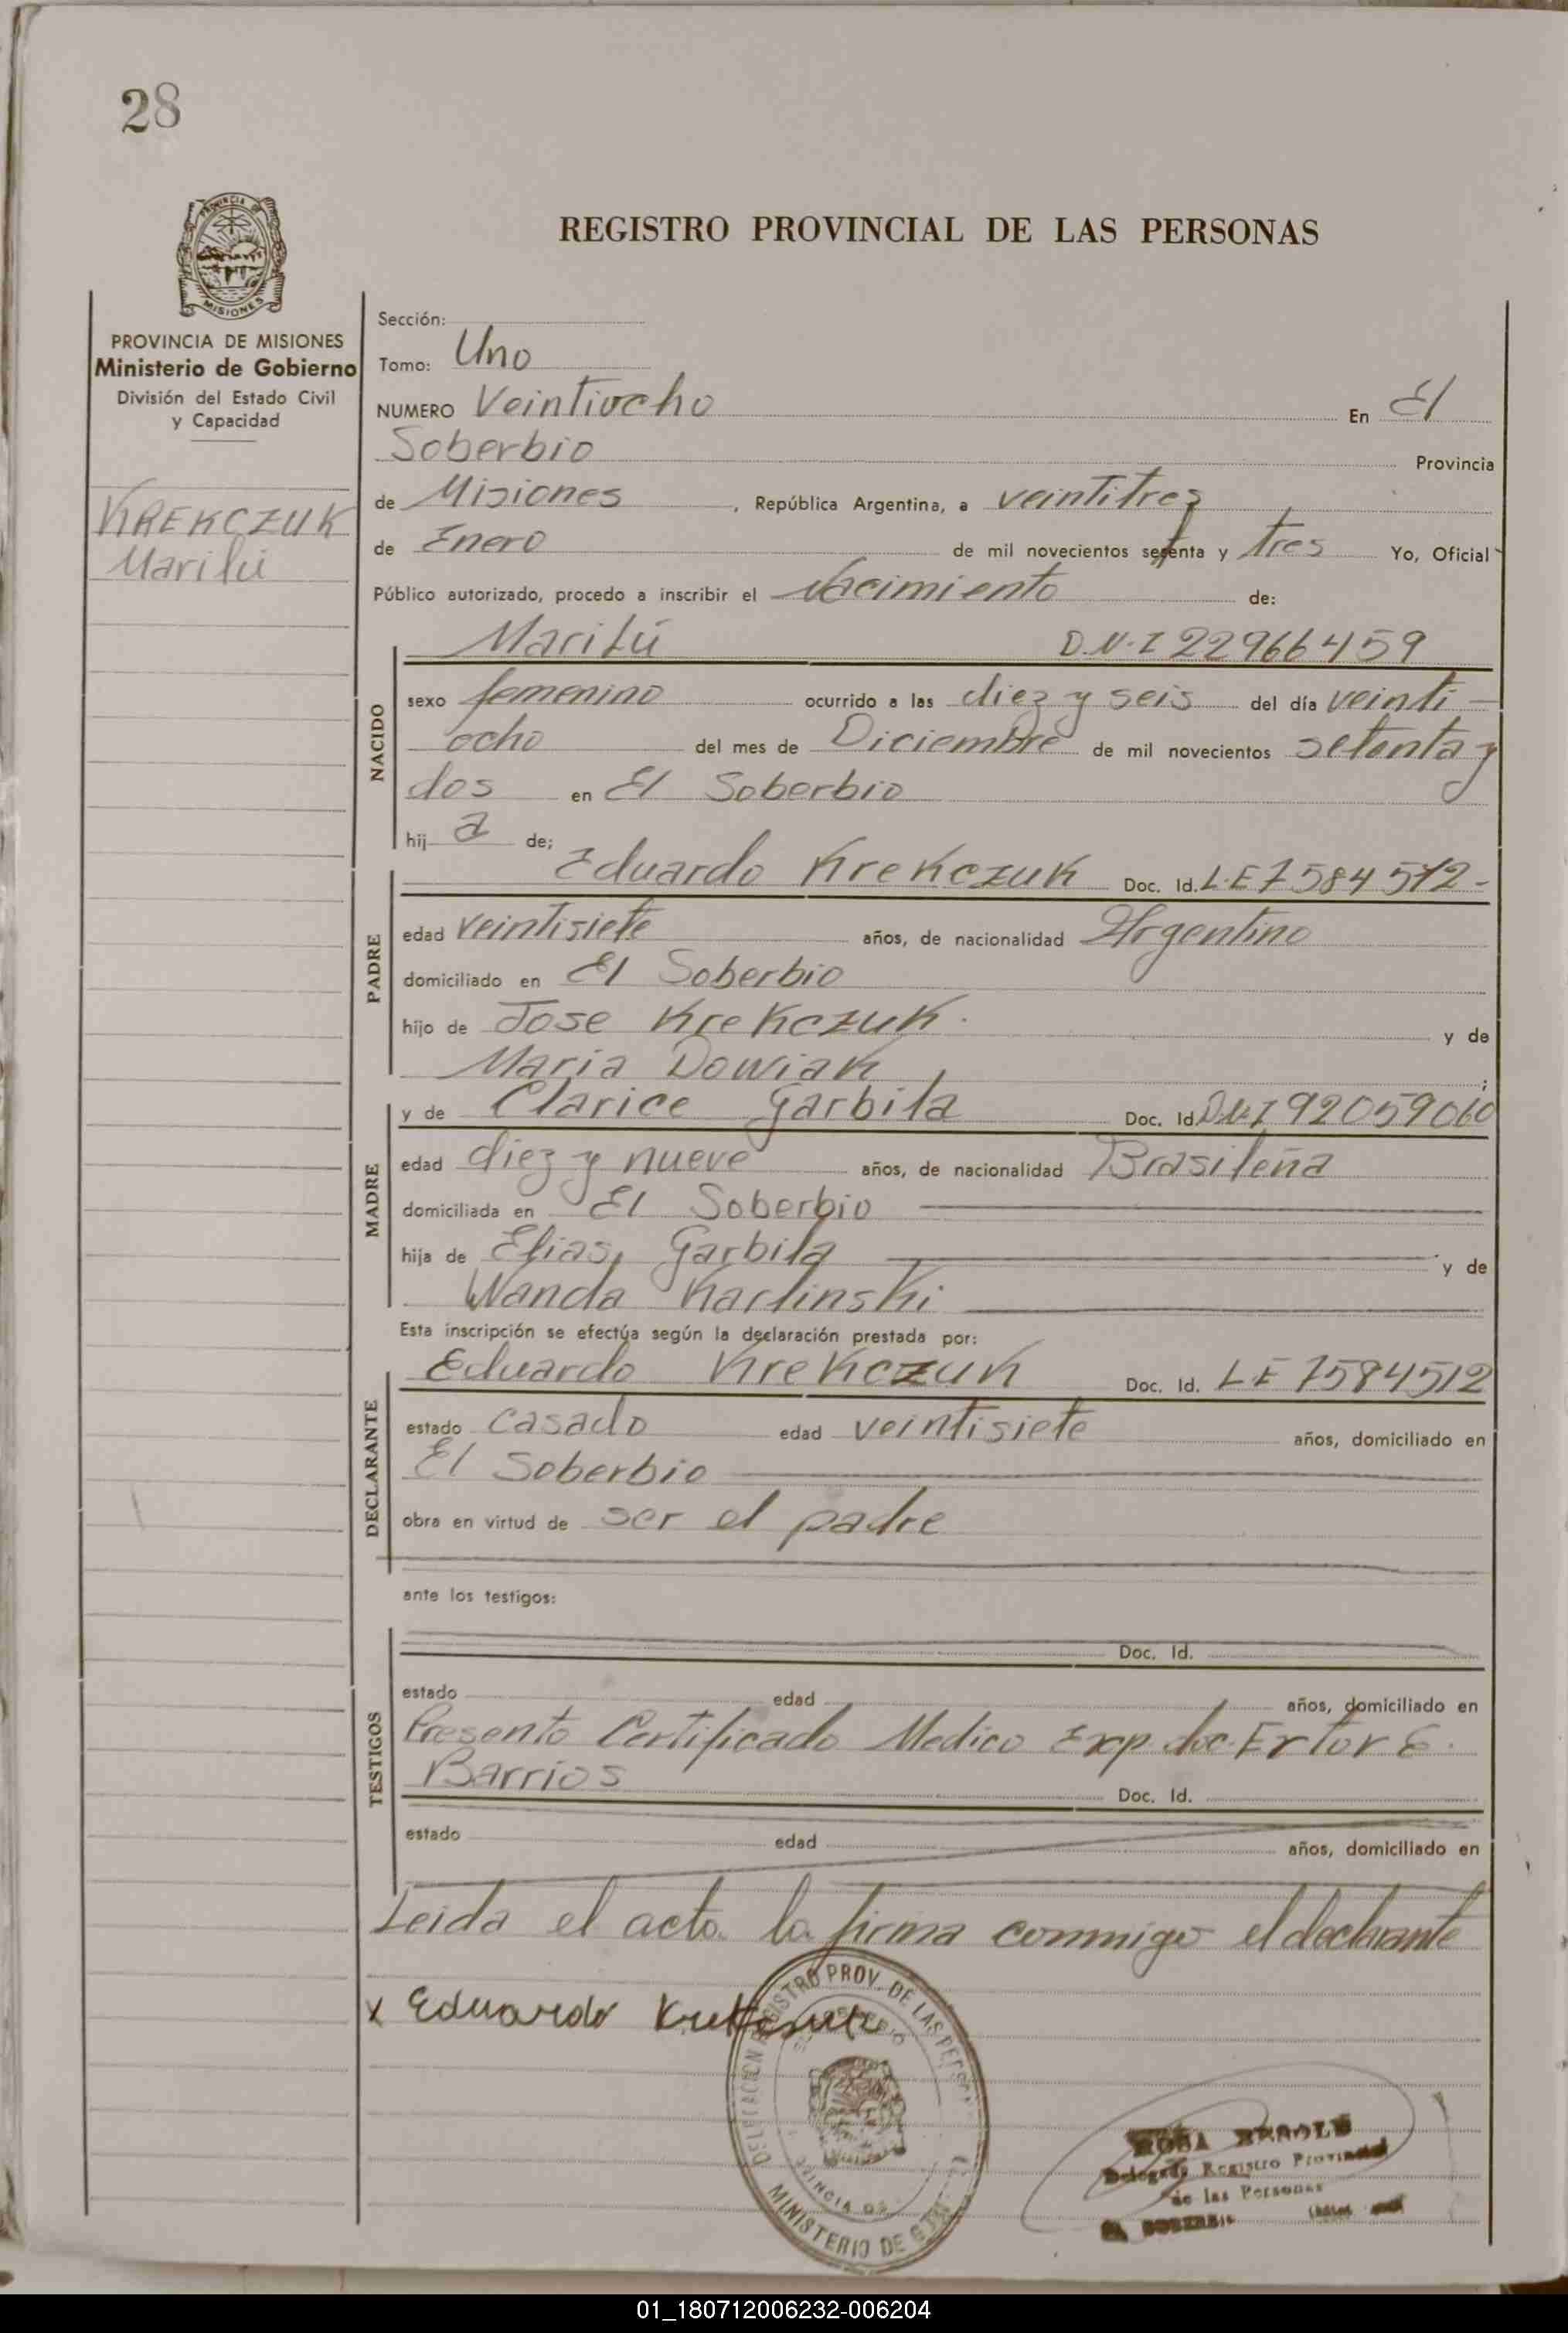 28
PROVINCIA DE
MISIONES
REGISTRO PROVINCIAL DE LAS PERSONAS
PROVINCIA DE MISIONES
Ministerio de Gobierno
División del Estado Civil
y Capacidad
KREKCZUK
Marilú
Sección:
Tomo: Uno
NUMERO Veintiocho En El
Soberbio Provincia
de Misiones, República Argentina, a veintitres
de Enero de mil novecientos setenta y tres Yo, Oficial
Público autorizado, procedo a inscribir el Nacimiento de:
NACIDO
Marilú D.N.I 22966459
sexo femenino ocurrido a las diez y seis del día veinti-
ocho del mes de Diciembre de mil novecientos setenta y
dos en El Soberbio
hij a de;
PADRE
Eduardo Krekczuk Doc. Id. L.E 7584512-
edad veintisiete años, de nacionalidad Argentino
domiciliado en El Soberbio
hijo de Jose Krekczuk. y de
Maria Dowiak;
MADRE
y de Clarice Garbila Doc. Id. D.N.I 92059060
edad diez y nueve años, de nacionalidad Brasileña
domiciliada en El Soberbio
hija de Elias Garbila y de
Wanda Karlinski
Esta inscripción se efectúa según la declaración prestada por:
DECLARANTE
Eduardo Krekczuk Doc. Id. LE 7584512
estado casado edad veintisiete años, domiciliado en
El Soberbio
obra en virtud de ser el padre
ante los testigos:
TESTIGOS
Doc. Id.
estado edad años, domiciliado en
Presento Certificado Medico Exp. doc. Ertor E.
Barrios Doc. Id.
estado edad años, domiciliado en
Leida el acta la firma conmigo el declarante
x Eduardo Krekczuk
DELEGACION REGISTRO PROV. DE LAS PERSONAS
MINISTERIO DE
ROSA
Delegada Registro Provincial
de las Personas
EL SOBERBIO
01_180712006232-006204